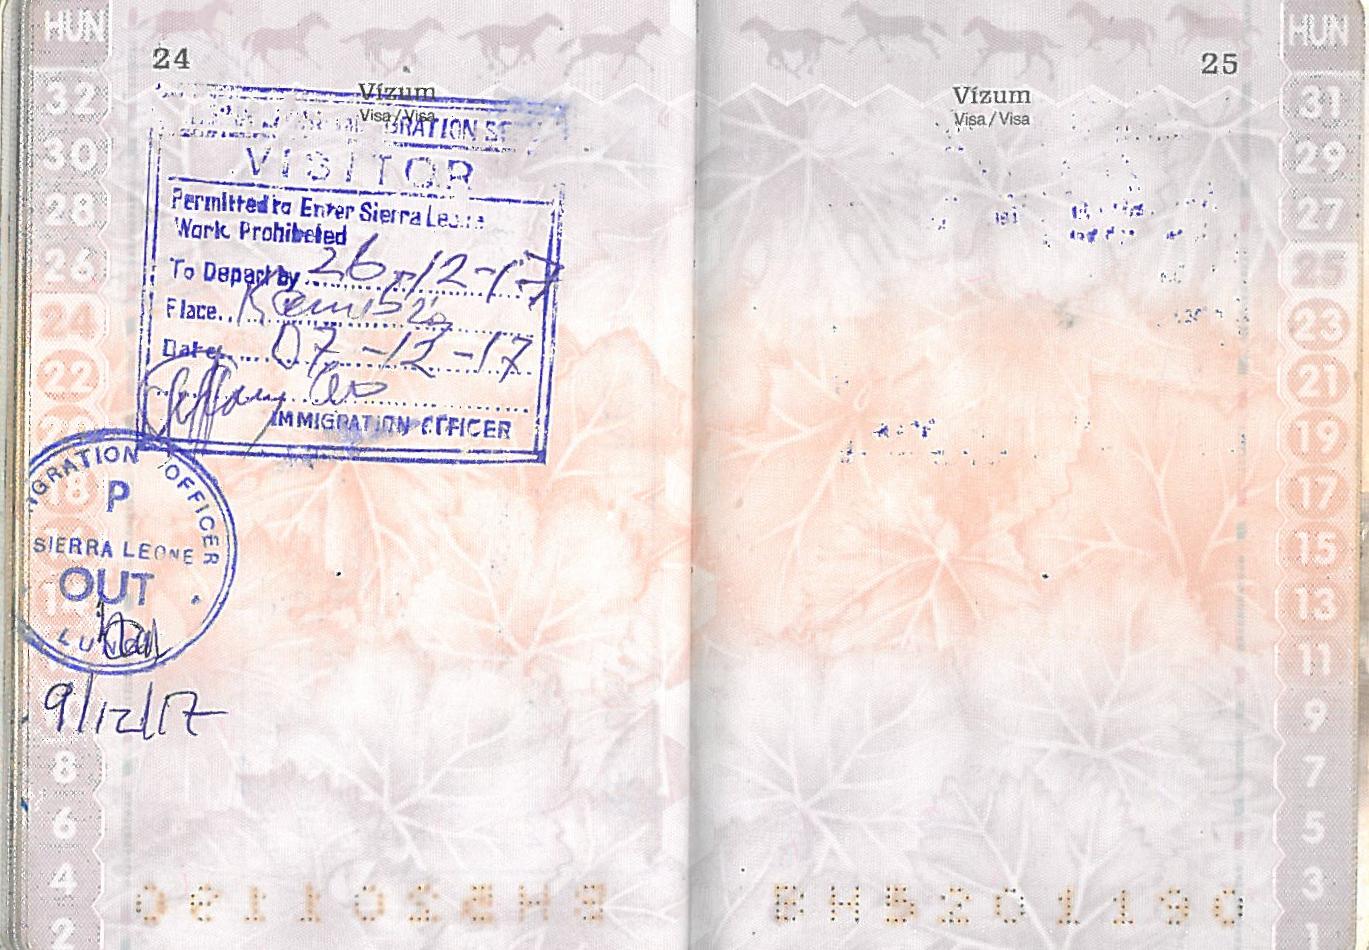 HUN
24
Vízum
Visa/Visa
32
30
28
26
24
22
20
18
8
6
4
2
VISITOR
Permitted to Enter Sierra Leone
Work Prohibeted
To Depart by 26-12-17
Place
Date 07-12-17
IMMIGRATION OFFICER
OFFICER
P
SIERRA LEONE
OUT
9/12/17
HUN
25
Vízum
Visa/Visa
31
29
27
25
23
21
19
17
15
13
11
9
7
5
3
1
BH5201190